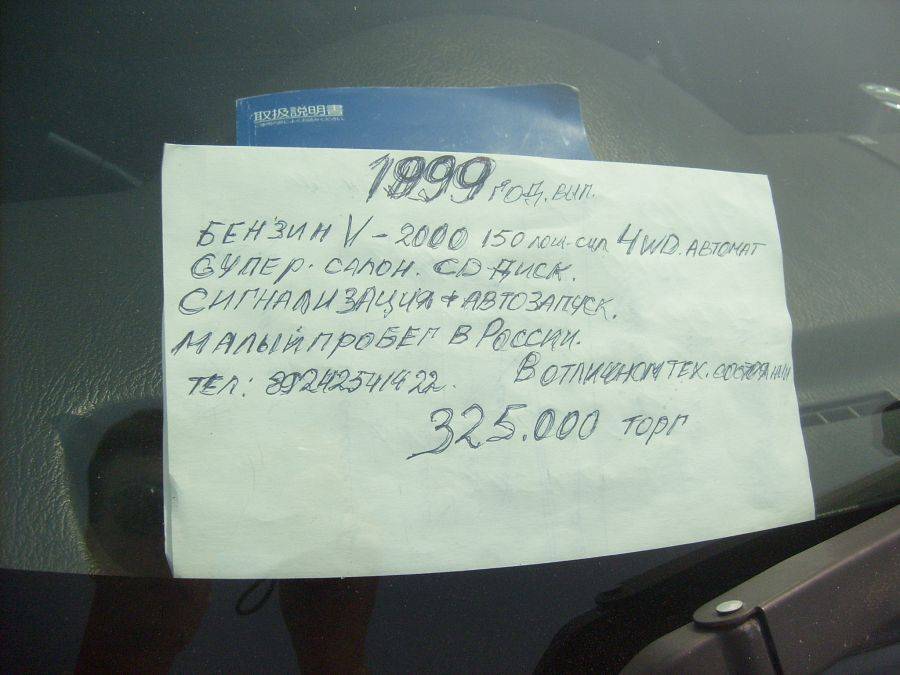 取扱説明書
1999 год. вып.
БЕНЗИН V-2000 150 лош-сил 4WD. АВТОМАТ
СУПЕР. САЛОН. CD ДИСК.
СИГНАЛИЗАЦИЯ + АВТОЗАПУСК.
МАЛЫЙ ПРОБЕГ В РОССИИ.
В ОТЛИЧНОМ ТЕХ. СОСТОЯНИИ
ТЕЛ: 89242541422.
325.000 ТОРГ